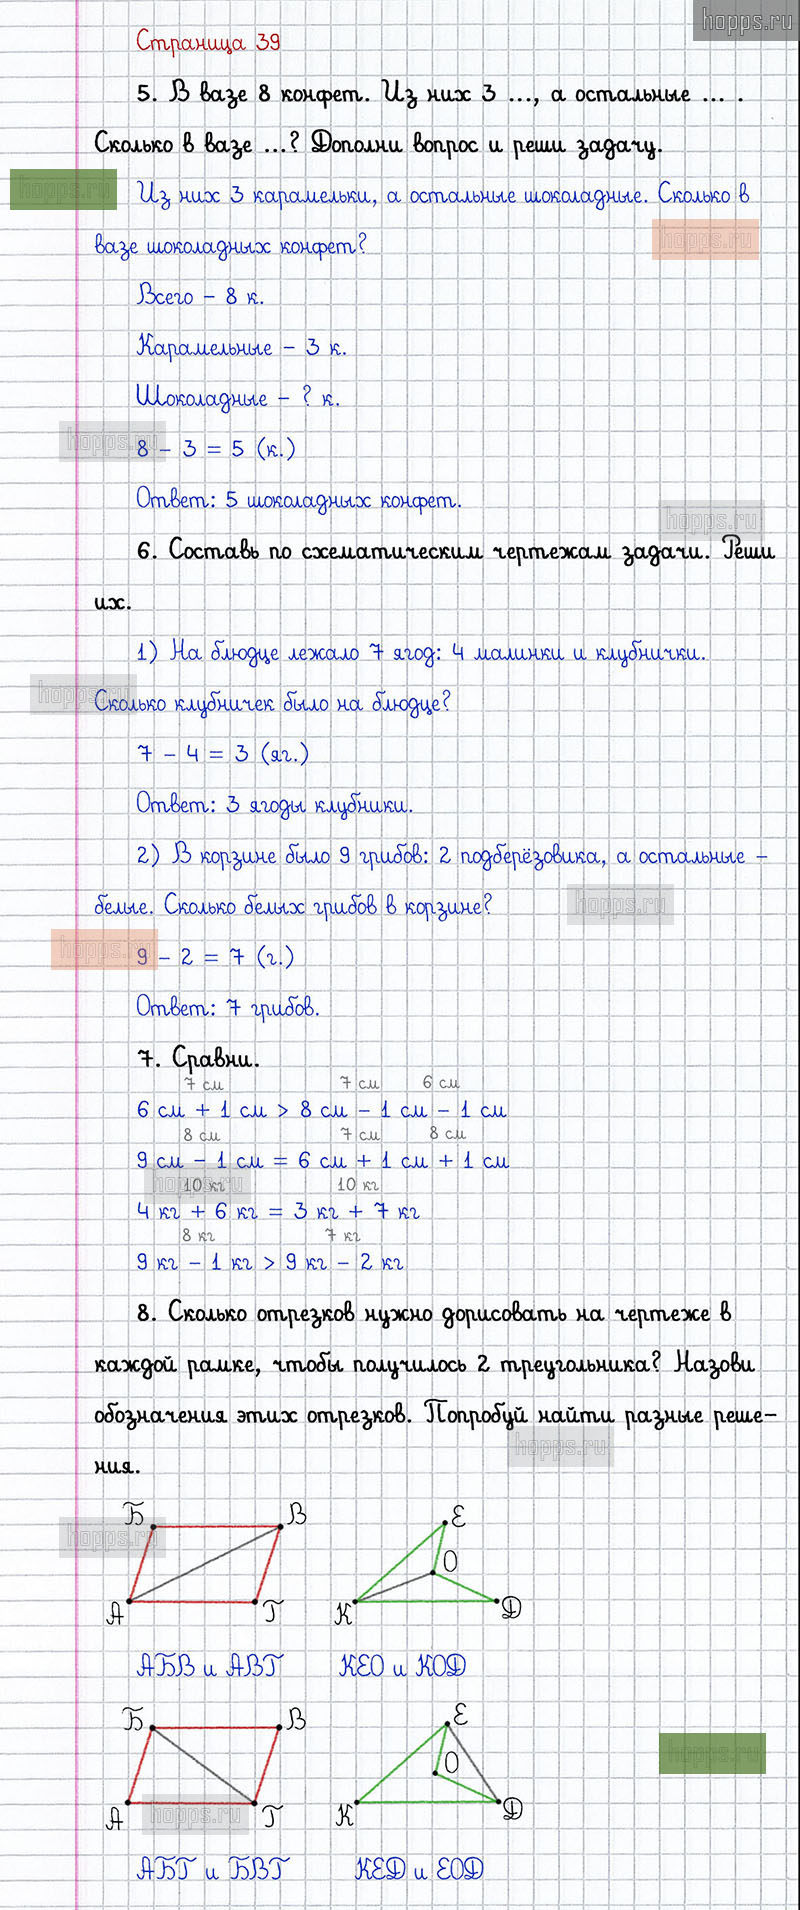 hopps.ru
Страница 39
5. В вазе 8 конфет. Из них 3 ..., а остальные ... .
Сколько в вазе ...? Дополни вопрос и реши задачу.
hopps.ru
Из них 3 карамельки, а остальные шоколадные. Сколько в
вазе шоколадных конфет?
hopps.ru
Всего – 8 к.
Карамельные – 3 к.
Шоколадные – ? к.
hopps.ru
8 – 3 = 5 (к.)
Ответ: 5 шоколадных конфет.
hopps.ru
6. Составь по схематическим чертежам задачи. Реши
их.
1) На блюдце лежало 7 ягод: 4 малинки и клубнички.
hopps.ru
Сколько клубничек было на блюдце?
7 – 4 = 3 (яг.)
Ответ: 3 ягоды клубники.
2) В корзине было 9 грибов: 2 подберёзовика, а остальные –
белые. Сколько белых грибов в корзине?
hopps.ru
hopps.ru
9 – 2 = 7 (г.)
Ответ: 7 грибов.
7. Сравни.
7 см 7 см 6 см
6 см + 1 см > 8 см – 1 см – 1 см
8 см 7 см 8 см
9 см – 1 см = 6 см + 1 см + 1 см
hopps.ru
10 кг 10 кг
4 кг + 6 кг = 3 кг + 7 кг
8 кг 7 кг
9 кг – 1 кг > 9 кг – 2 кг
8. Сколько отрезков нужно дорисовать на чертеже в
каждой рамке, чтобы получилось 2 треугольника? Назови
обозначения этих отрезков. Попробуй найти разные реше-
ния.
hopps.ru
Б В Е
hopps.ru
О
А Г К Д
АБВ и АВГ КЕО и КОД
Б В Е
О
hopps.ru
А Г К Д
hopps.ru
АБГ и БВГ КЕД и ЕОД